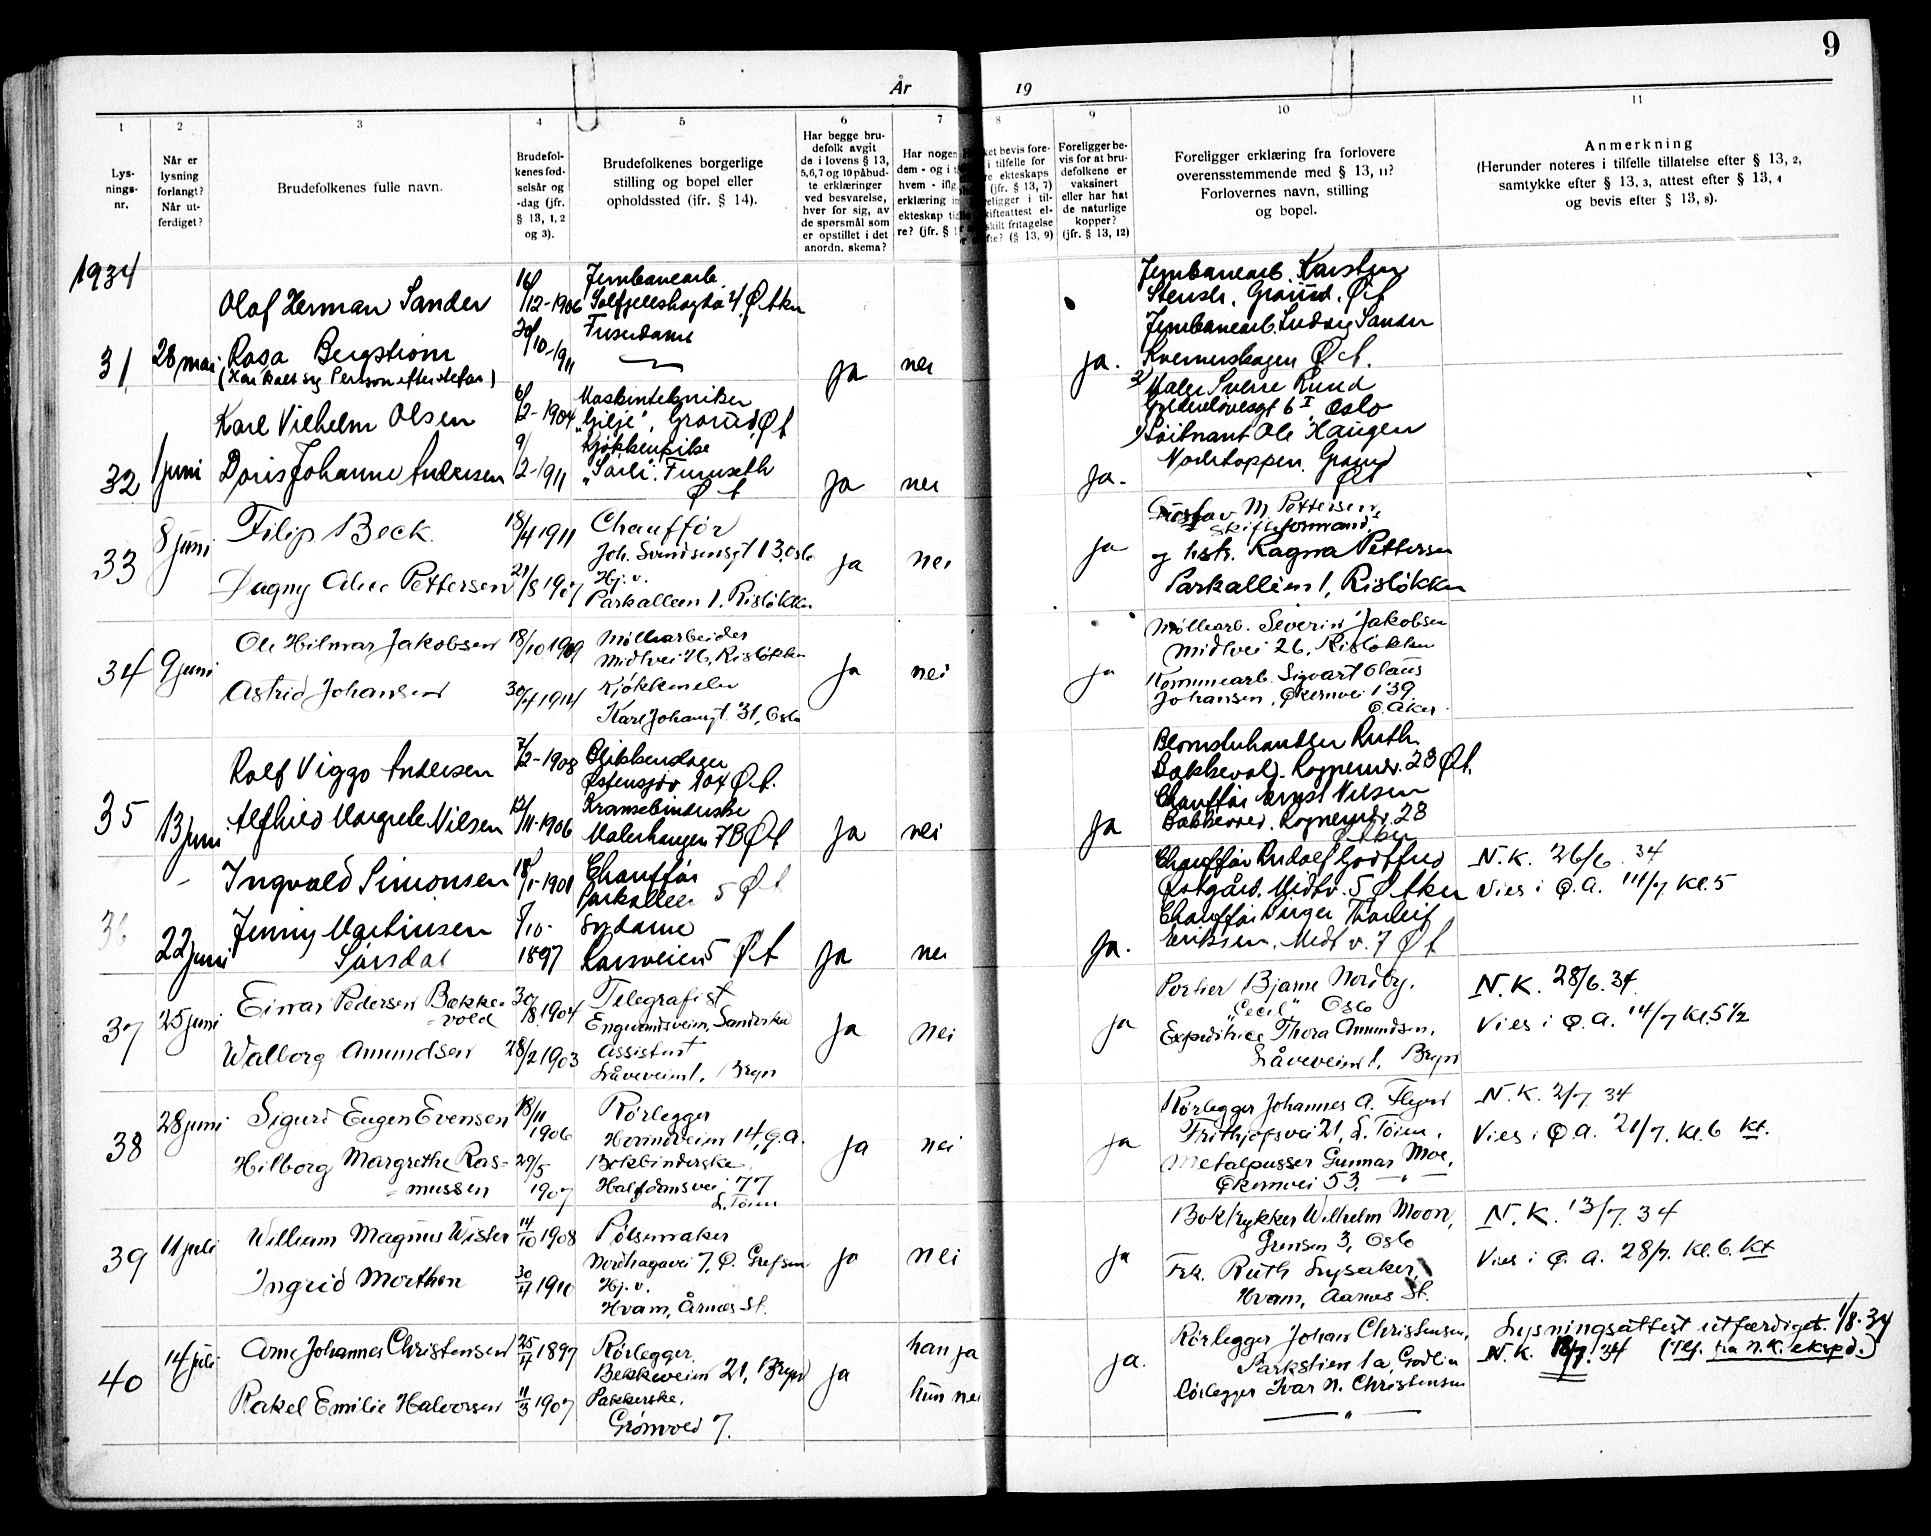 9
År 19
1 2 3 4 5 6 7 8 9 10 11
Lys-
nings-
nr.
Når er
lysning
forlangt?
Når ut-
ferdiget?
Brudefolkenes fulle navn.
Brudefol-
kenes fød-
selsår og
-dag (jfr.
§ 13, 1, 2
og 3).
Brudefolkenes borgerlige
stilling og bopel eller
opholdssted (ifr. § 14).
Har begge bru-
defolk avgit
de i lovens § 13,
5,6,7 og 10 påbud-
te erklæringer
ved besvarelse,
hver for sig, av
de spørsmål som
er opstillet i det
anordn. skema?
Har nogen
dem - og i
hvem - ifl.
erklæring
ekteskap
re? (jfr. §
ket bevis fore-
i tilfelle for
re ekteskaps
(jfr. § 13, 7)
eligger i til-
kifteattest el-
skilt fritagelse
fte? (§ 13, 9)
Foreligger be-
vis for at bru-
defolkene er
vaksinert
eller har hat
de naturlige
kopper?
(jfr. § 13, 12)
Foreligger erklæring fra forlovere
overensstemmende med § 13, 11?
Forlovernes navn, stilling
og bopel.
Anmerkning
(Herunder noteres i tilfelle tillatelse efter § 13, 2,
samtykke efter § 13, 3, attest efter § 13, 4
og bevis efter § 13, 8).
1934
31 28 mai
Olaf Herman Sander
Rosa Bergstrøm
16/12-1906
30/10-1911
Jernbanearb.
Ja nei ja.
Jernbanearb. Karsten
Grorud. Øt
Jernbanearb. Ludvig Sander
Kvernerhagen Øt.
32 1 juni
Karl Vilhelm Olsen
Doris Johanne Andersen
6/2-1904
9/2-1911
Maskintekniker
"Gilje", Grorud, Øt
Kjøkkenpike
Furuseth
Øt
Ja nei Ja.
2) Maler Sverre Rund
Gyldenløvesgt 6 I Oslo
1) Løitnant Ole Haugen
Grorud
Øt
33 8 juni
Filip Beck.
Dagny Alice Pettersen
18/4 1911
Chauffør
Joh. Svendsensgt 13, Oslo
Hj. v.
Parkalleen 1. Risløkken
ja nei ja
Gustav M. Pettersen,
Skifteformand,
og hstr. Ragna Pettersen
Parkalleen 1, Risløkken
34 9 juni
Ole Hilmar Jakobsen
Astrid Johansen
18/10 1909
30/4 1914
Møllearbeider
Midtvei 26, Risløkken
Kjøkkenelev
Karl Johansgt. 31, Oslo
ja nei ja
Møllearb. Severin Jakobsen
Midtvei 26, Risløkken
Kommunearb. Sigvart Olaus
Johansen, Økernvei 139.
Ø. Aker.
35 13 juni
Rolf Viggo Andersen
Alfhild Margrete Nilsen
7/2-1908
12/11-1906
Blikkenslager
Østensjøv 204 Øt.
Kransebinderske
Malerhaugen 7B Øt
Ja nei Ja
Blomsterhandler Ruth
Bakkevold. Rognerudv. 28 Øt.
Chauffør Ernst Nilsen
Bakkevold. Rognerudv 28
36 22 juni
Ingvald Simonsen
Jenny Martinsen
Sørsdal
1897
Chauffør
Parkalleen 5 Øt
Sydame
Larsveien 5 Øt
Ja nei Ja.
Chauffør Rudolf Godtfred
Østgård. Midtv. 5 Ø Aker
Chauffør Birger Thorleif
Eriksen. Midt v. 7 Øt
N.K. 26/6. 34
Vies i Ø.A. 14/7 kl. 5
37 25 juni
Einar Pedersen Bække-
vold
Walborg Amundsen
30/8. 1904
28/2 1903
Telegrafist
Assistent
Låveveien 1, Bryn
Ja nei ja
Portier Bjarne Nordby.
"Cecil" Oslo
Expeditrice Thora Amundsen,
Låveveien 1, Bryn
N.K. 28/6. 34.
Vies i Ø.A. 14/7 kl. 5 1/2
38 28 juni
Sigurd Eugen Evensen
Hilborg Margrethe Ras-
mussen
18/11 1906
29/5 1907
Rørlegger
Hovindveien 14, Ø.A.
Bokbinderske
Halfdansvei 77
L. Tøien
Ja nei ja
Rørlegger Johannes A. Flyen
Frithjofsvei 21, L. Tøien,
Metalpusser Gunnar Moe,
Økernvei 53. — " —
N.K. 2/7. 34
Vies i Ø.A. 21/7. kl. 6 kt.
39 11 juli
William Magnus Wister
Ingrid Morthen
14/10 1908
30/4 1910
Pølsemaker
Nordhagavei 7, Ø. Grefsen
Hj. v.
Hvam, Årnes st.
ja nei ja
Boktrykker Wilhelm Moon,
Grensen 3, Oslo
Frk. Ruth Lysaker,
Hvam, Aarnes St.
N.K. 13/7. 34
Vies i Ø.A. 28/7. kl. 6. kt
40 14 juli
Arne Johannes Christensen
Rakel Emilie Halvorsen
25/4 1897
11/3 1907
Rørlegger,
Bekkeveien 21, Bryn
Pakkerske,
Grønvold 7.
ja
han ja
hun nei
ja.
Rørlegger Johan Christensen,
Parkstien 1a, Godlia
Rørlegger Ivar N. Christensen
— " —
Lysningsattest utfærdiget. 1/8. 34
N.K. 18/7. 34 (Tlf. fra N.K. eksp.d.)